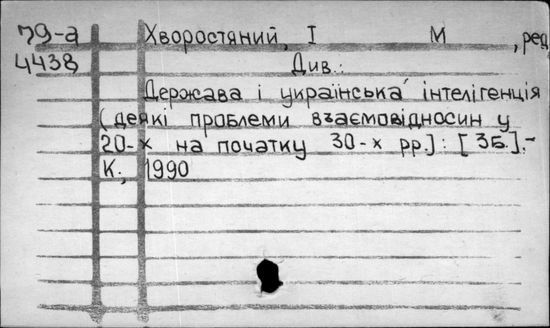 79-а Хворостяний, І М , ред
4438 Див.:
Держава і українська інтелігенція
(деякі проблеми взаємовідносин у
20-х на початку 30-х рр.]: [Зб.].-
К., 1990